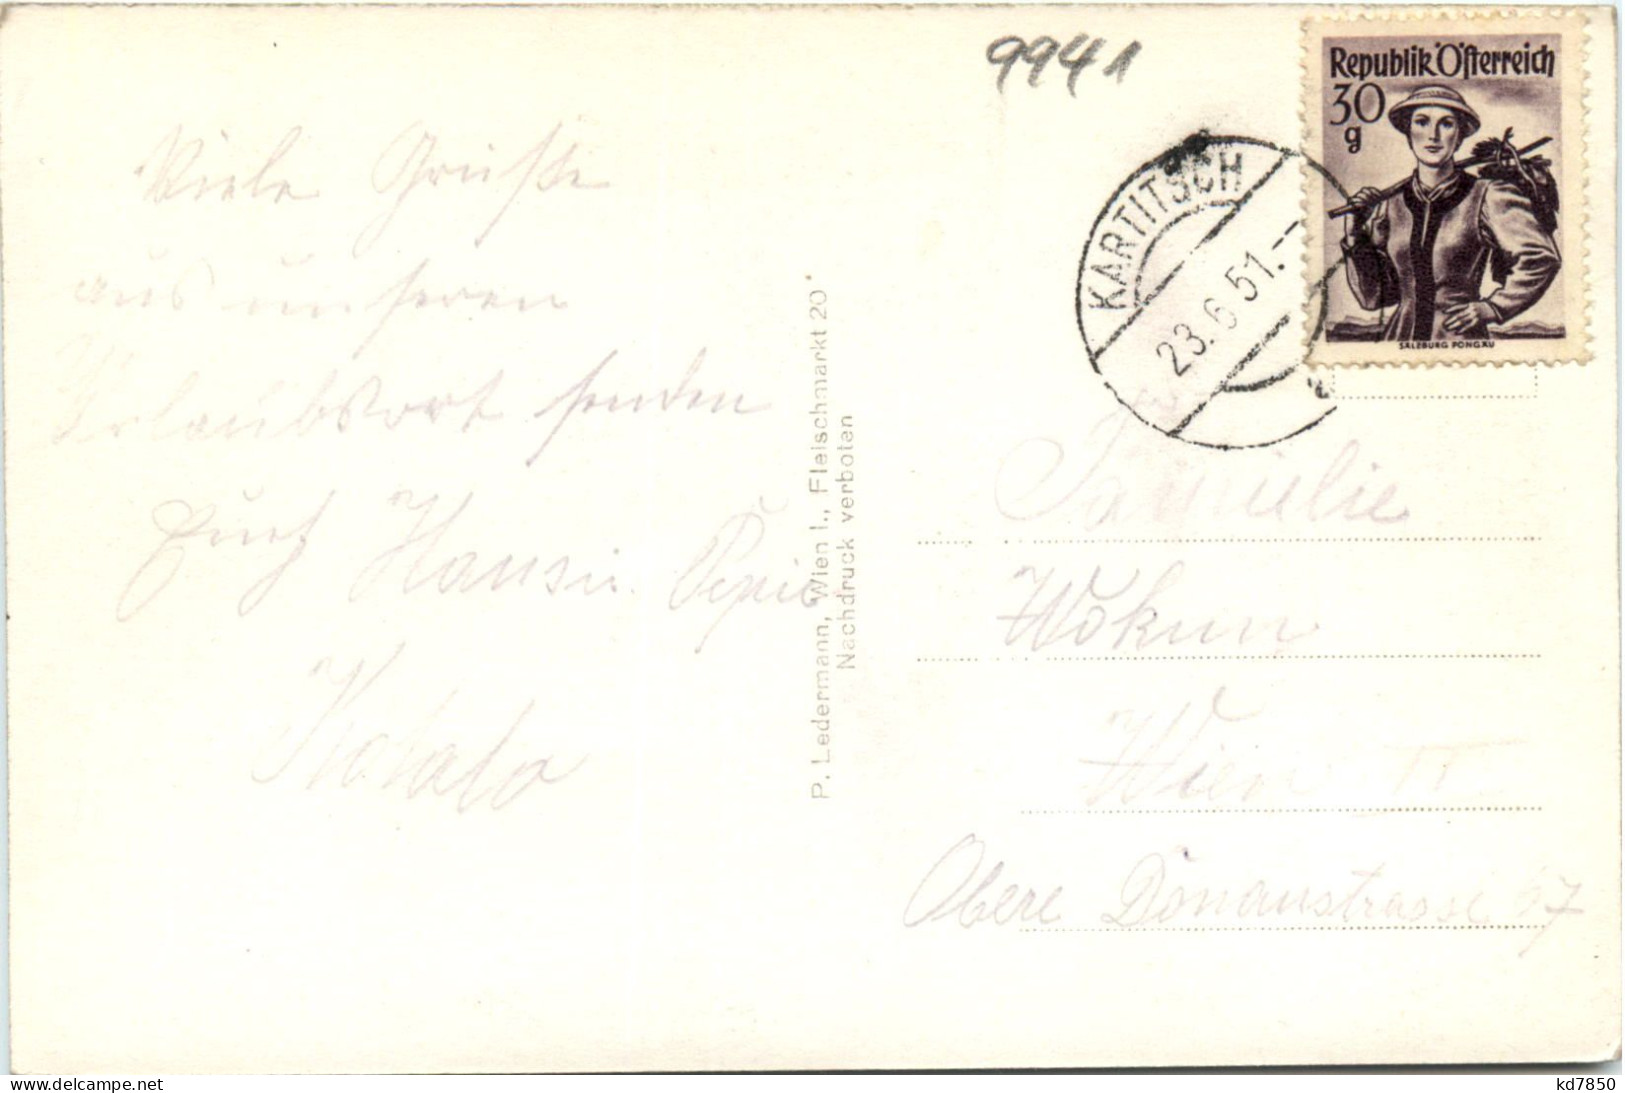 9941
Republik Österreich
30
g
SALZBURG PONGAU
KARTITSCH
23.6.51.--
Viele Grüße
aus unseren
Urlaubsort senden
Euch Hansi Pepi
P. Ledermann, Wien I., Fleischmarkt 20
Nachdruck verboten
Familie
Wokun
Wien II
Obere Donaustrasse 67
www.delcampe.net
kd7850